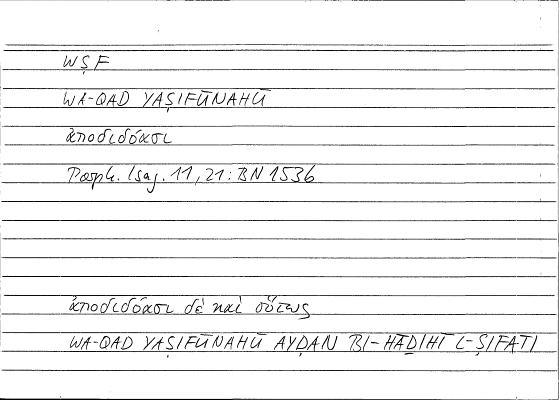 WṢF
WA-QAD YAṢIFŪNAHŪ
ἀποδιδόασι
Porph. Isag. 11,21: BN 1536
ἀποδιδόασι δὲ καὶ οὕτως
WA-QAD YAṢIFŪNAHŪ AYḌAN BI-HĀḎIHĪ L-ṢIFATI